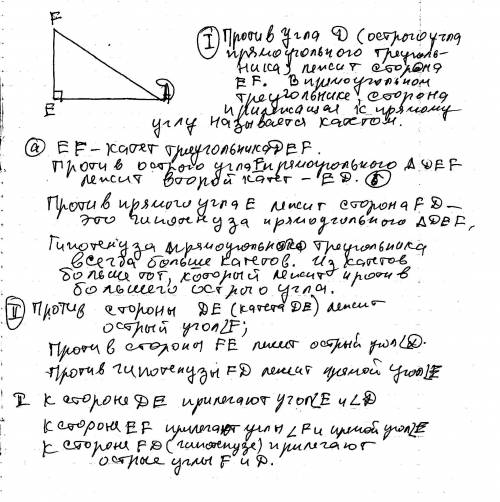 F
E
D
I Против угла D (острого угла
прямоугольного треуголь-
ника) лежит сторона
EF. В прямоугольном
треугольнике сторона
прилежащая к прямому
углу называется катетом.
а EF - катет треугольника DEF.
Против острого угла F прямоугольного Δ DEF
лежит второй катет - ED. б
Против прямого угла E лежит сторона FD -
это гипотенуза прямоугольного ΔDEF,
Гипотенуза прямоугольного треугольника
всегда больше катетов. Из катетов
больше тот, который лежит против
большего острого угла.
II Против стороны DE (катета DE) лежит
острый угол ∠F;
Против стороны FE лежит острый угол ∠D.
Против гипотенузы FD лежит прямой угол ∠E
К стороне DE прилегают угол ∠E и ∠D
К стороне EF прилегают углы ∠F и прямой угол ∠E
К стороне FD (гипотенузе) прилегают
острые углы F и D.